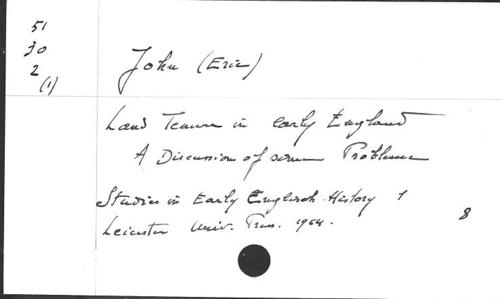 51
30
2
(1)
John (Eric)
Land Tenure in early England
A Discussion of some Problems
Studies in Early English History 1
Leicester Univ. Press. 1964.
8